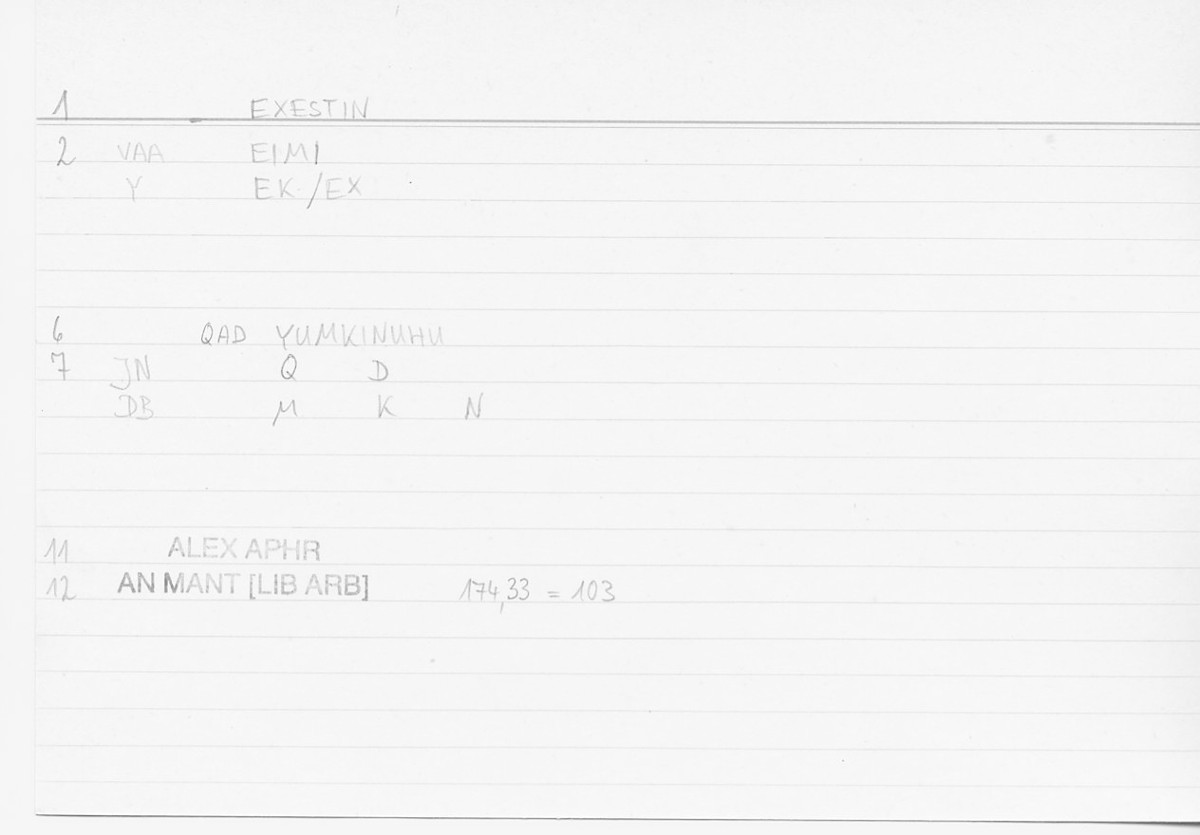 1 EXESTIN
2 VAA EIMI
Y EK/EX
6 QAD YUMKINUHU
7 JN Q D
DB M K N
11 ALEX APHR
12 AN MANT [LIB ARB] 174,33 = 103